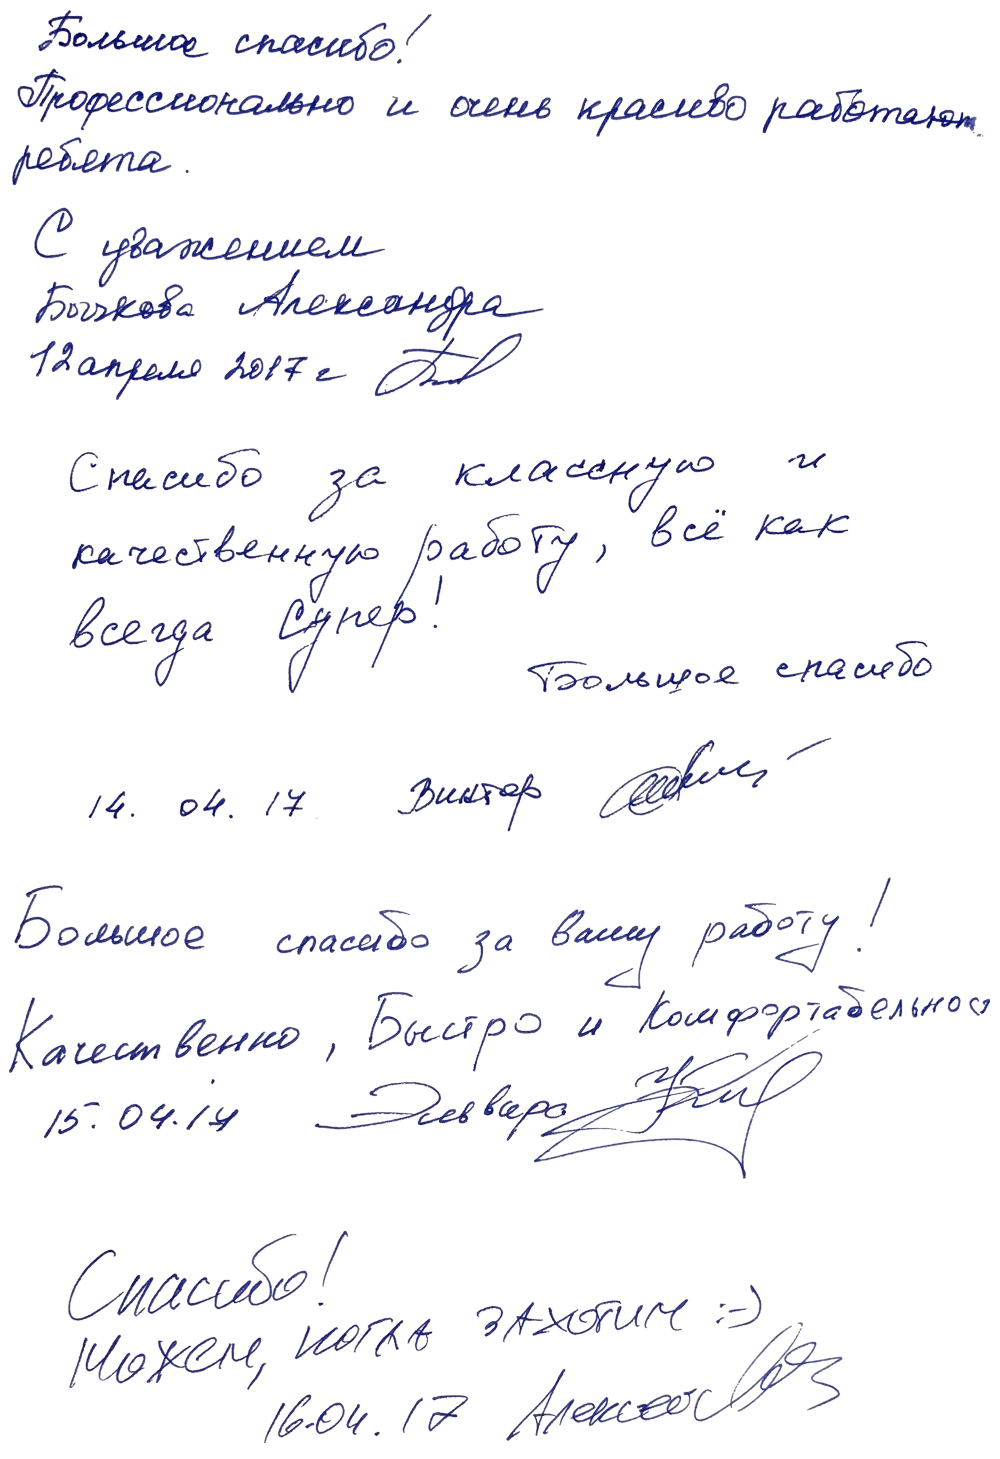 Большое спасибо!
Профессионально и очень красиво работают
ребята.
С уважением
Бычкова Александра
12 апреля 2017 г
Спасибо за классную и
качественную работу, всё как
всегда Супер!
Большое спасибо
14. 04. 17 Виктор
Большое спасибо за вашу работу!
Качественно, Быстро и Комфортабельно
15.04.17 Эльвира
Спасибо!
Можем, когда захотим :-)
16.04.17 Алексей